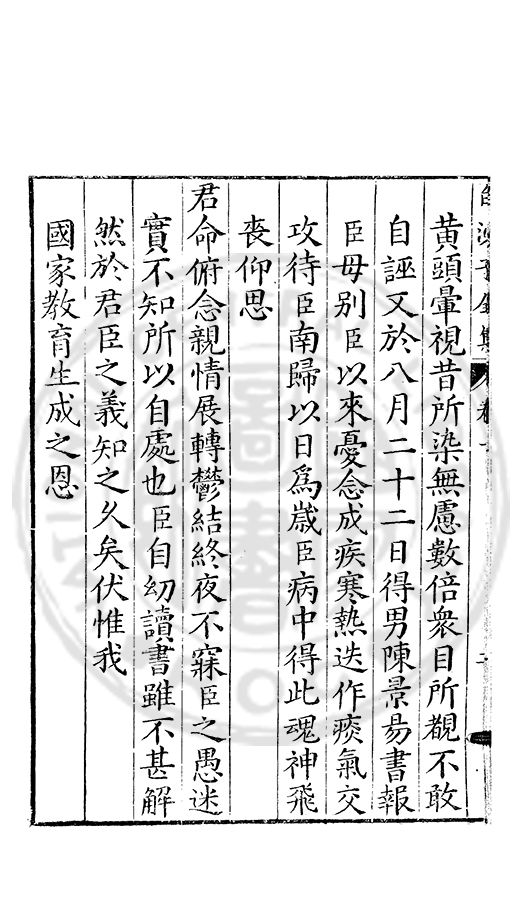 黃頭暈視昔所染無慮數倍衆目所覩不敢
自誣又於八月二十二日得男陳景昜書報
臣母别臣以來憂念成疾寒熱迭作痰氣交
攻待臣南歸以日爲歲臣病中得此魂神飛
喪仰思
君命俯念親情展轉鬱結終夜不寐臣之愚迷
實不知所以自處也臣自幼讀書雖不甚解
然於君臣之義知之久矣伏惟我
國家教育生成之恩